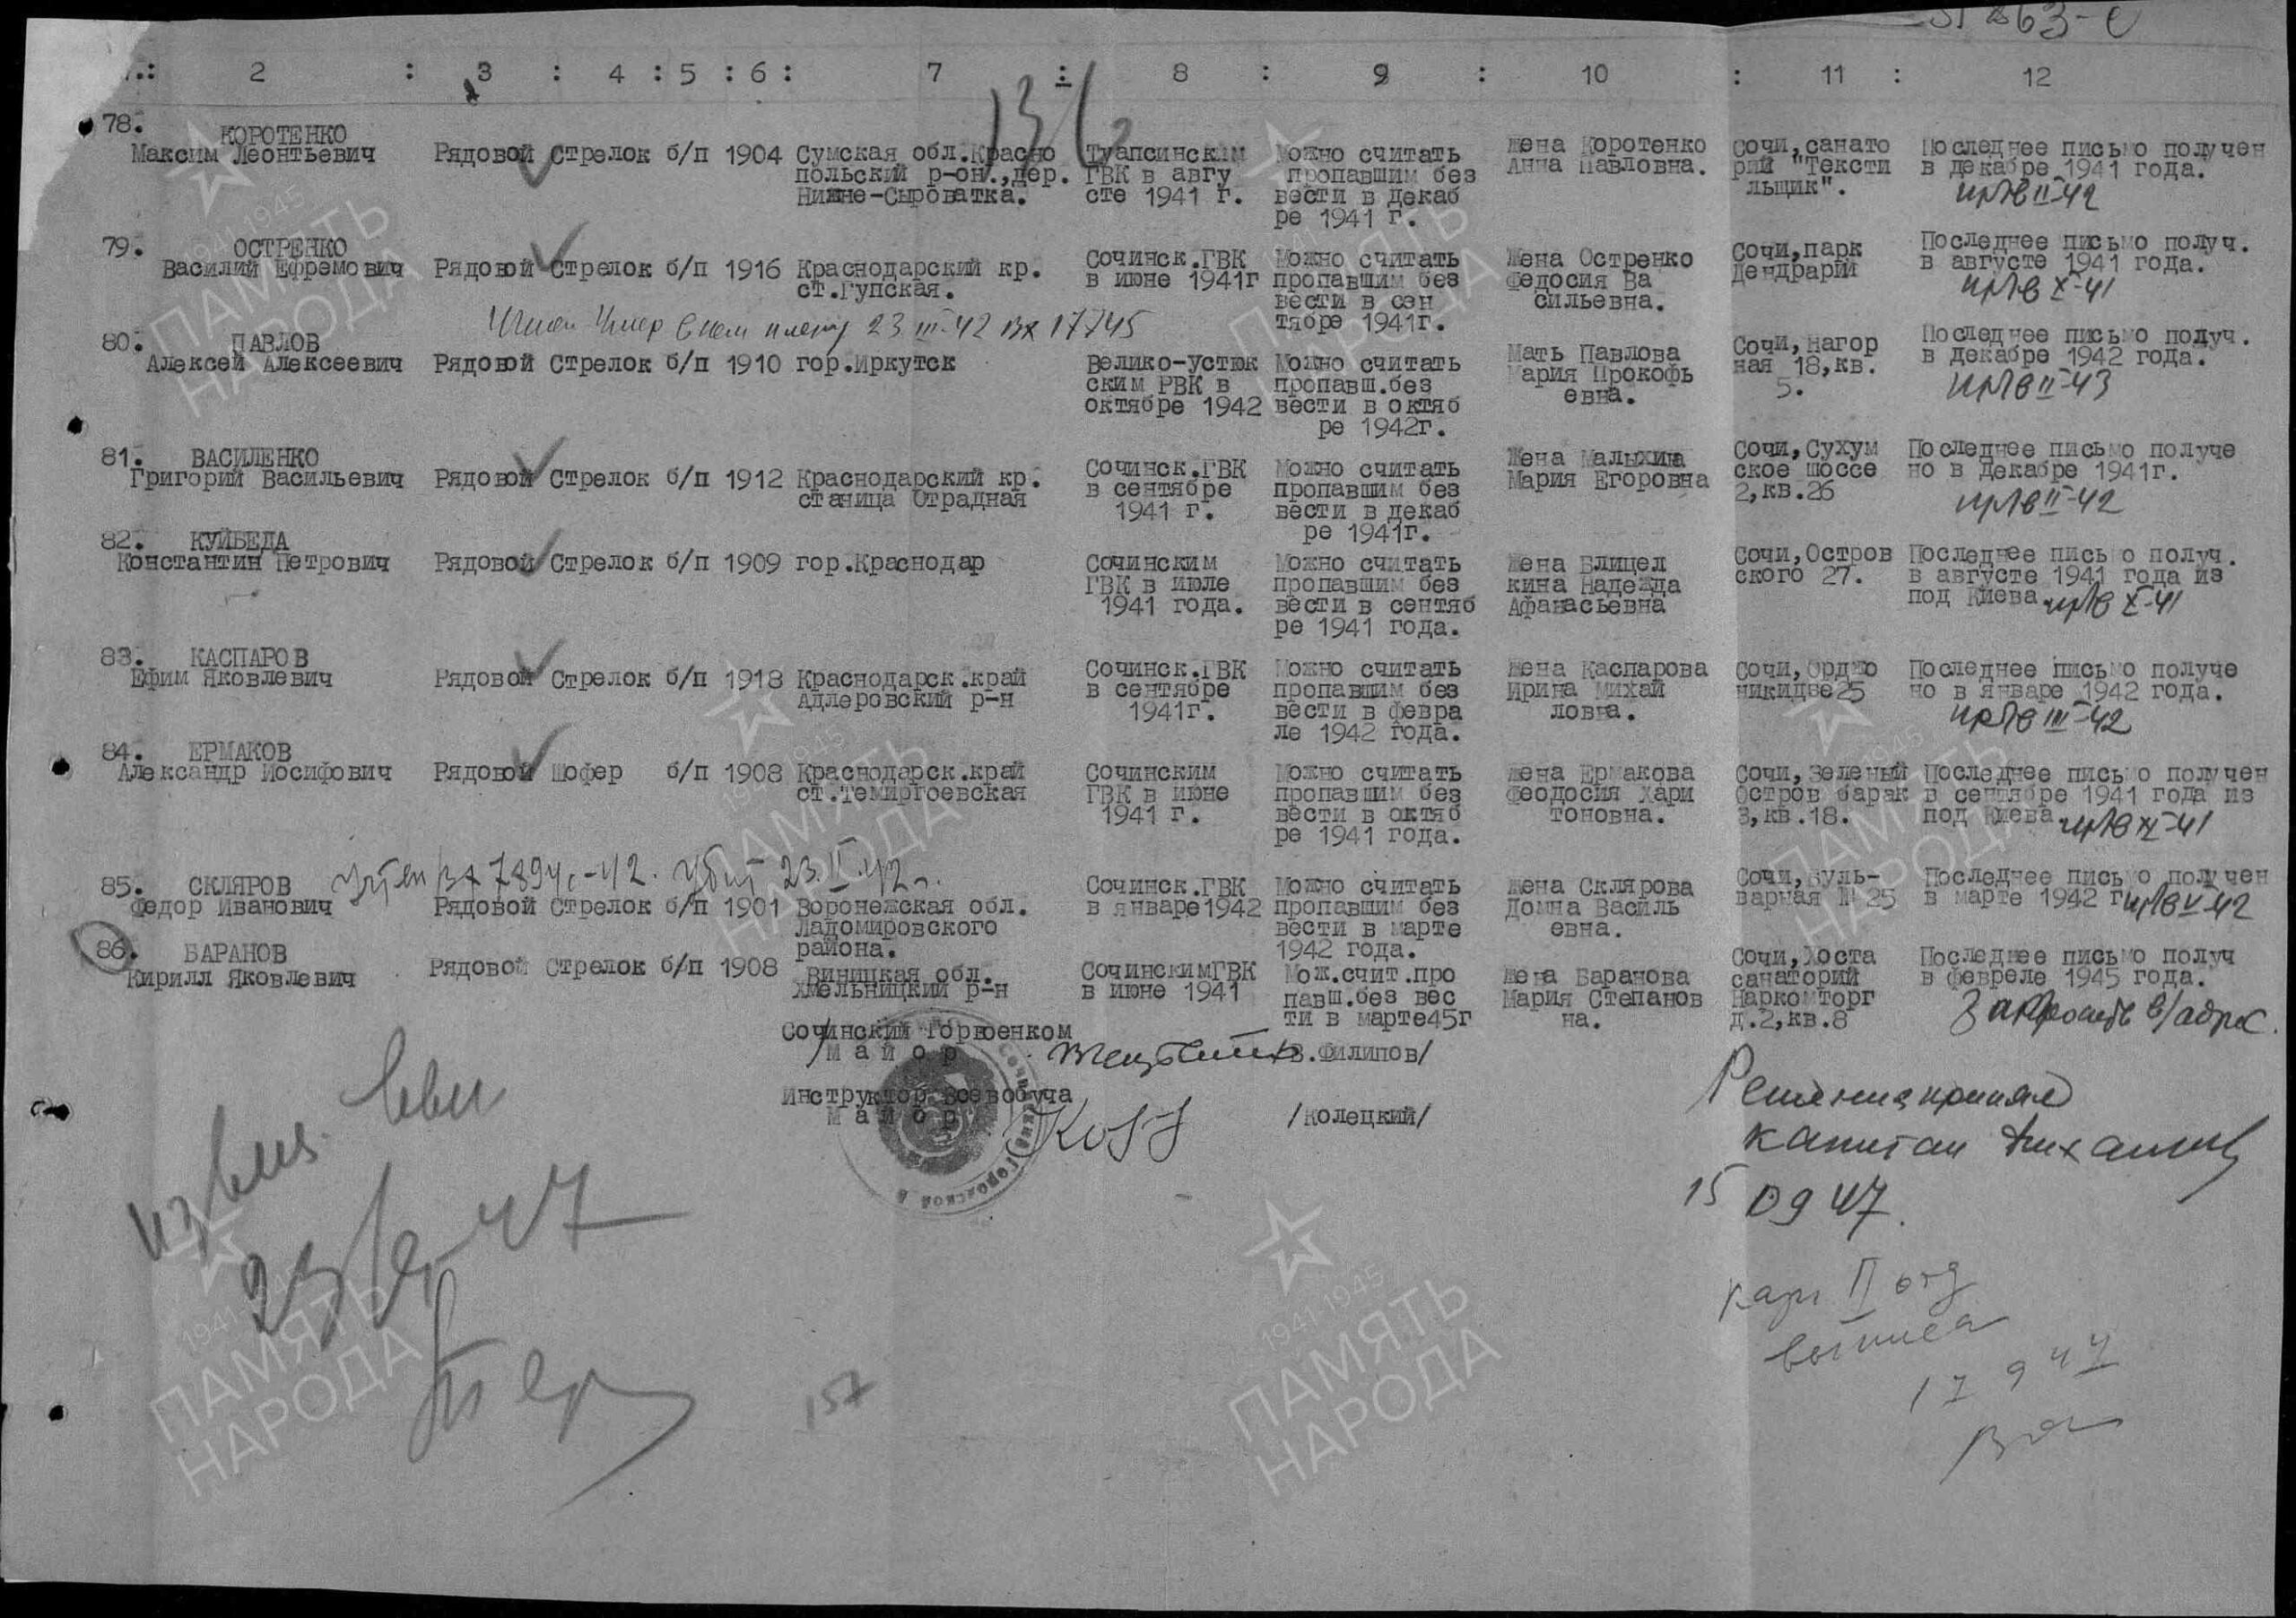 63-с
2 : 3 : 4 : 5 : 6 : 7 : 8 : 9 : 10 : 11 : 12
78. КОРОТЕНКО
Максим Леонтьевич Рядовой Стрелок б/п 1904 Сумская обл.Красно
польский р-он.,дер.
Нижне-Сыроватка.
Туапсинским
ГВК в авгу
сте 1941 г.
Можно считать
пропавшим без
вести в декаб
ре 1941 г.
Жена Коротенко
Анна Павловна.
Сочи,санато
рий "Тексти
льщик".
Последнее письмо получен
в декабре 1941 года.
II-42
79. ОСТРЕНКО
Василий Ефремович Рядовой Стрелок б/п 1916 Краснодарский кр.
ст.Гупская.
Сочинск.ГВК
в июне 1941г
Можно считать
пропавшим без
вести в сен
тябре 1941г.
Жена Остренко
Федосия Ва
сильевна.
Сочи,парк
Дендрарий
Последнее письмо получ.
в августе 1941 года.
X-41
23 III-42 вх 17745
80. ПАВЛОВ
Алексей Алексеевич Рядовой Стрелок б/п 1910 гор.Иркутск
Велико-устюк
ским РВК в
октябре 1942
Можно считать
пропавш.без
вести в октяб
ре 1942г.
Мать Павлова
Мария Прокофь
евна.
Сочи,Нагор
ная 18,кв.
5.
Последнее письмо получ.
в декабре 1942 года.
II-43
81. ВАСИЛЕНКО
Григорий Васильевич Рядовой Стрелок б/п 1912 Краснодарский кр.
станица Отрадная
Сочинск.ГВК
в сентябре
1941 г.
Можно считать
пропавшим без
вести в декаб
ре 1941г.
Жена Малыхина
Мария Егоровна
Сочи,Сухум
ское шоссе
2,кв.26
Последнее письмо получе
но в декабре 1941г.
II-42
82. КУЙБЕДА
Константин Петрович Рядовой Стрелок б/п 1909 гор.Краснодар
Сочинским
ГВК в июле
1941 года.
Можно считать
пропавшим без
вести в сентяб
ре 1941 года.
Жена Блицел
кина Надежда
Афанасьевна
Сочи,Остров
ского 27.
Последнее письмо получ.
в августе 1941 года из
под Киева X-41
83. КАСПАРОВ
Ефим Яковлевич Рядовой Стрелок б/п 1918 Краснодарск.край
Адлеровский р-н
Сочинск.ГВК
в сентябре
1941г.
Можно считать
пропавшим без
вести в февра
ле 1942 года.
Жена Каспарова
Ирина Михай
ловна.
Сочи,Орджо
никидзе25
Последнее письмо получе
но в январе 1942 года.
III-42
84. ЕРМАКОВ
Александр Иосифович Рядовой Шофер б/п 1908 Краснодарск.край
ст.Темиргоевская
Сочинским
ГВК в июне
1941 г.
Можно считать
пропавшим без
вести в октяб
ре 1941 года.
Жена Ермакова
Феодосия Хари
тоновна.
Сочи,Зеленый
Остров барак
3,кв.18.
Последнее письмо получен
в сентябре 1941 года из
под Киева XI-41
учтен вх 7894с-42. убит 23.II.42г.
85. СКЛЯРОВ
Федор Иванович Рядовой Стрелок б/п 1901 Воронежская обл.
Ладомировского
района.
Сочинск.ГВК
в январе1942
Можно считать
пропавшим без
вести в марте
1942 года.
Жена Склярова
Домна Василь
евна.
Сочи,Буль-
варная № 25
Последнее письмо получен
в марте 1942 г V-42
86. БАРАНОВ
Кирилл Яковлевич Рядовой Стрелок б/п 1908 Виницкая обл.
Хмельницкий р-н
СочинскимГВК
в июне 1941
Мож.счит.про
павш.без вес
ти в марте45г
Жена Баранова
Мария Степанов
на.
Сочи,Хоста
санаторий
Наркомторг
д.2,кв.8
Последнее письмо получ
в февреле 1945 года.
Запросить в/адрес.
Сочинский Горвоенком
/Майор /В.Филипов/
Инструктор Всевобуча
Майор /Колецкий/
Решения принял
капитан
15 09 47.
II отд
выписал
17 9 47
извещ.
157
1941-1945
ПАМЯТЬ
НАРОДА